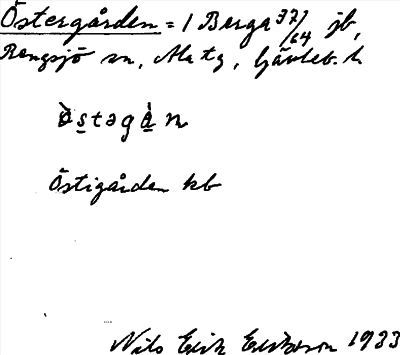 Östergården = 1 Berga 37/64 jb,
Rengsjö sn, Ala tg, Gävleb. l.
ò̀s̲təgà̲n
Östigården kb
Nils Erik Eriksson 1933